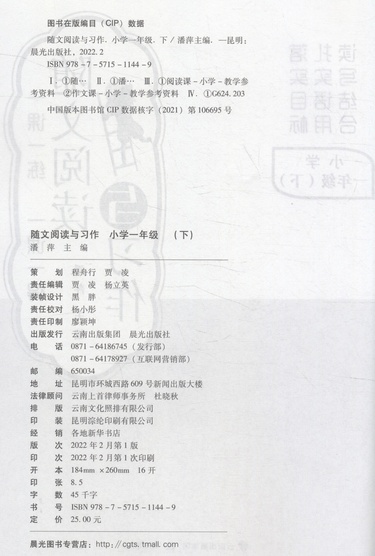 图书在版编目（CIP）数据
随文阅读与习作．小学一年级．下／潘萍主编．—昆明：
晨光出版社，2022.2
ISBN 978-7-5715-1144-9
Ⅰ．①随… Ⅱ．①潘… Ⅲ．①阅读课-小学-教学参
考资料 ②作文课-小学-教学参考资料 Ⅳ．①G624.203
中国版本图书馆CIP数据核字（2021）第106695号
随文阅读与习作 小学一年级 （下）
潘萍 主编
策划 程舟行 贾凌
责任编辑 贾凌 杨立英
装帧设计 黑胖
责任校对 杨小彤
责任印制 廖颖坤
出版发行 云南出版集团 晨光出版社
电话 0871-64186745（发行部）
0871-64178927（互联网营销部）
邮编 650034
地址 昆明市环城西路609号新闻出版大楼
法律顾问 云南上首律师事务所 杜晓秋
排版 云南文化照排有限公司
印装 昆明淙纶印刷有限公司
经销 各地新华书店
版次 2022年2月第1版
印次 2022年2月第1次印刷
开本 184mm×260mm 16开
印张 8.5
字数 45千字
书号 ISBN 978-7-5715-1144-9
定价 25.00元
晨光图书专营店：http://cgts.tmall.com